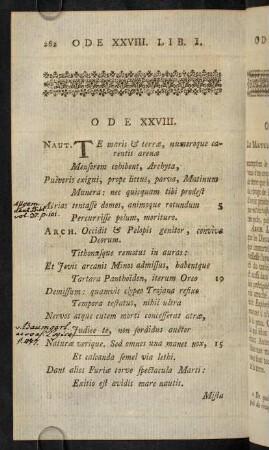 282 ODE XXVIII. LIB. I.
ODE XXVIII.
NAUT. TE maris & terræ, numeroque ca-
rentis arenæ
Mensorem cohibent, Archyta,
Pulveris exigui, prope littus, parva, Matinum
Munera: nec quisquam tibi prodest
Aërias tentasse domos, animoque rotundum 5
Percurrisse polum, morituro.
ARCH. Occidit & Pelopis genitor, conviva
Deorum.
Tithonusque remotus in auras:
Et Jovis arcanis Minos admissus, habentque
Tartara Panthoiden, iterum Orco 10
Demissum: quamvis clypeo Trojana refixo
Tempora testatus, nihil ultra
Nervos atque cutem morti concesserat atræ,
Judice te, non sordidus auctor
Naturæ verique. Sed omnes una manet nox, 15
Et calcanda semel via lethi.
Dant alios Furiæ torvo spectacula Marti:
Exitio est avidis mare nautis.
Mista
Allgem.
v. Baumgart.
ODE